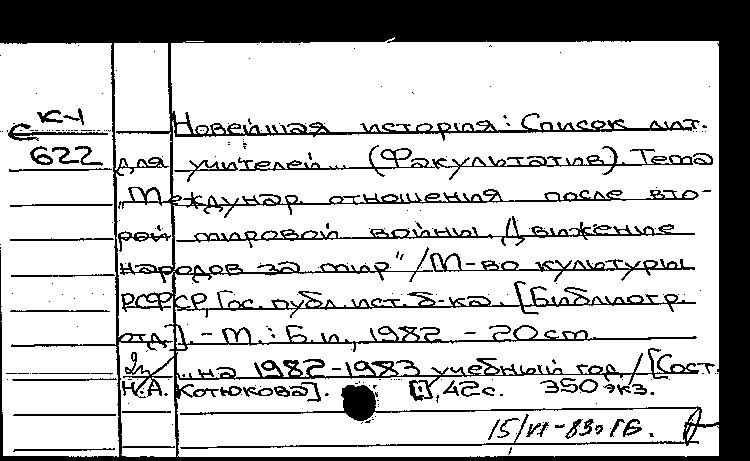 К-1
С
622
Новейшая история: Список лит.
для учителей... (Факультатив). Тема
„Междунар. отношения после вто-
рой мировой войны. Движение
народов за мир" /М-во культуры
РСФСР, Гос. публ. ист. б-ка. [Библиогр.
отд.]. - М.: Б.и., 1982 - 20см.
...на 1982-1983 учебный год./[Сост.
Н.А. Котюкова]. , 42с. 350 экз.
15/VI-83г ГБ.